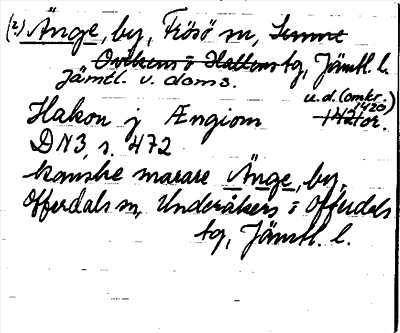 (2) Änge, by, Frösö sn, Sunne
Ovikens o Hallens tg, Jämtl. l.
Jämtl. v. doms.
u.d. (omkr. 1420)
Hakon j Ængiom
DN 3, s. 472
kanske snarare Änge, by,
Offerdals sn, Undersåkers o Offerdals
tg, Jämtl. l.